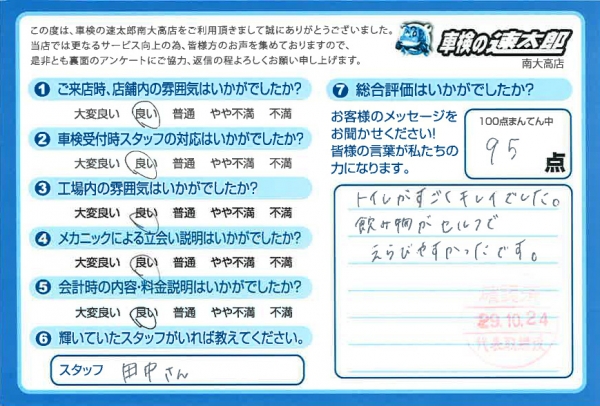 この度は、車検の速太郎南大高店をご利用頂きまして誠にありがとうございました。
当店では更なるサービス向上の為、皆様方のお声を集めておりますので、
是非とも裏面のアンケートにご協力、返信の程よろしくお願い申し上げます。
車検の速太郎
南大高店
1 ご来店時、店舗内の雰囲気はいかがでしたか?
大変良い 良い 普通 やや不満 不満
2 車検受付時スタッフの対応はいかがでしたか?
大変良い 良い 普通 やや不満 不満
3 工場内の雰囲気はいかがでしたか?
大変良い 良い 普通 やや不満 不満
4 メカニックによる立会い説明はいかがでしたか?
大変良い 良い 普通 やや不満 不満
5 会計時の内容・料金説明はいかがでしたか?
大変良い 良い 普通 やや不満 不満
6 輝いていたスタッフがいれば教えてください。
スタッフ 田中さん
7 総合評価はいかがでしたか?
お客様のメッセージを
お聞かせください!
皆様の言葉が私たちの
力になります。
100点まんてん中
95
点
トイレがすごくキレイでした。
飲み物がセルフで
えらびやすかったです。
29.10.24
代表取締役